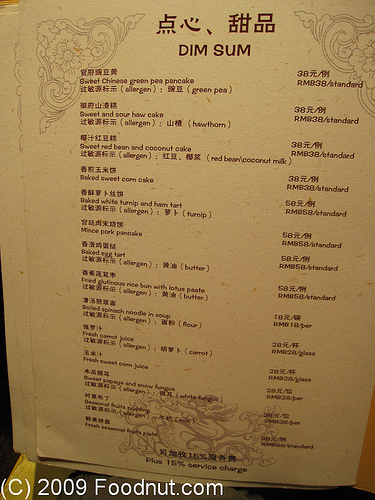 点心、甜品
DIM SUM
官府豌豆黄 38元/例
Sweet Chinese green pea pancake RMB38/standard
过敏源标示 ( allergen ) : 豌豆 ( green pea )
御府山渣糕 38元/例
Sweet and sour haw cake RMB38/standard
过敏源标示 ( allergen ) : 山楂 ( hawthorn )
椰汁红豆糕 38元/例
Sweet red bean and coconut cake RMB38/standard
过敏源标示 ( allergen ) : 红豆、椰浆 ( red bean\coconut milk )
香煎玉米饼 38元/例
Baked sweet corn cake RMB38/standard
香酥萝卜丝饼 58元/例
Baked white turnip and ham tart RMB58/standard
过敏源标示 ( allergen ) : 萝卜 ( turnip )
宫廷肉末烧饼 58元/例
Mince pork pancake RMB58/standard
香滑鸡蛋挞 58元/例
Baked egg tart RMB58/standard
过敏源标示 ( allergen ) : 黄油 ( butter )
58元/例
Fried glutinous rice bun with lotus paste RMB58/standard
过敏源标示 ( allergen ) : 黄油 ( butter )
清汤翡翠面 18元/碗
Boiled spinach noodle in soup RMB18/per
过敏源标示 ( allergen ) : 面粉 ( flour )
维萝汁 28元/杯
Fresh carrot juice RMB28/glass
过敏源标示 ( allergen ) : 胡萝卜 ( carrot )
玉米汁 28元/杯
Fresh sweet corn juice RMB28/glass
28元/位
Sweet papaya and snow fungus RMB28/per
过敏源标示 ( allergen ) : 银耳 ( white fungus )
时果布丁 38元/位
Seasonal fruits pudding RMB38/per
过敏源标示 ( allergen ) : 牛奶 ( milk )
鲜果拼盘 98元/例
Fresh seasonal fruits plate RMB98/standard
另加收15%服务费
Plus 15% service charge
(C) 2009 Foodnut.com